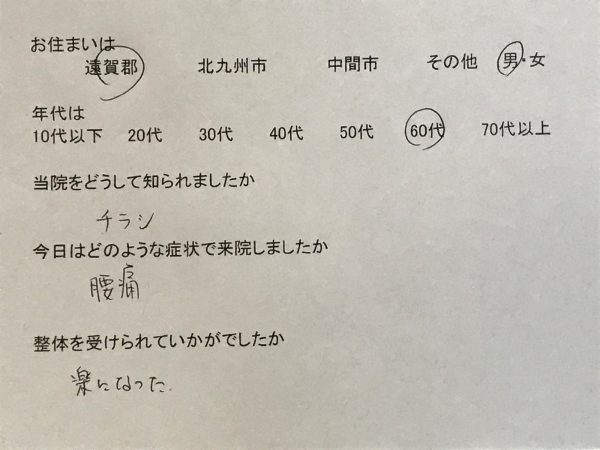 お住まいは
遠賀郡 北九州市 中間市 その他 男・女
年代は
10代以下 20代 30代 40代 50代 60代 70代以上
当院をどうして知られましたか
チラシ
今日はどのような症状で来院しましたか
腰痛
整体を受けられていかがでしたか
楽になった.